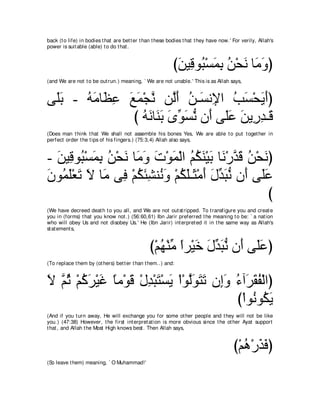 back (to life) in bodies that are better than these bodies that they have now.' For verily, Allah's
power is suitable (able) to do that.
(وَمَا نَحْنُ بِمَسْبُوقِينَ)
(and We are not to be outrun.) meaning, `We are not unable.' This is as Allah says,
(أَيَحْسَبُ الإِنسَـنُ أَلَّن نَّجْمَعَ عِظَامَهُ - بَلَى
قَـدِرِينَ عَلَى أَن نُّسَوِّىَ بَنَانَهُ )
(Does man think that We shall not assemble his bones Yes, We are able to put together in
perfect order the tips of his fingers.) (75:3,4) Allah also says,
(نَحْنُ قَدَّرْنَا بَيْنَكُمُ الْمَوْتَ وَمَا نَحْنُ بِمَسْبُوقِينَ -
عَلَى أَن نُّبَدِّلَ أَمْثَـلَكُمْ وَنُنشِئَكُمْ فِى مَا لاَ تَعْلَمُونَ
)
(We have decreed death to you all, and We are not outstripped. To transfigure you and create
you in (forms) that you know not.) (56:60,61) Ibn Jarir preferred the meaning to be `a nation
who will obey Us and not disobey Us.' He (Ibn Jarir) interpreted it in the same way as Allah's
statements,
(عَلَى أَن نُّبَدِّلَ خَيْراً مِّنْهُمْ)
(To replace them by (others) better than them..) and:
(الْفُقَرَآءُ وَإِن تَتَوَلَّوْاْ يَسْتَبْدِلْ قَوْماً غَيْرَكُمْ ثُمَّ لاَ
يَكُونُواْ)
(And if you turn away, He will exchange you for some other people and they will not be like
you.) (47:38) However, the first interpretation is more obvious since the other Ayat support
that, and Allah the Most High knows best. Then Allah says,
(فَذَرْهُمْ)
(So leave them) meaning, `O Muhammad!'